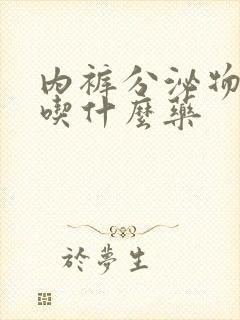 内裤分泌物
喫什麼藥
於夢生